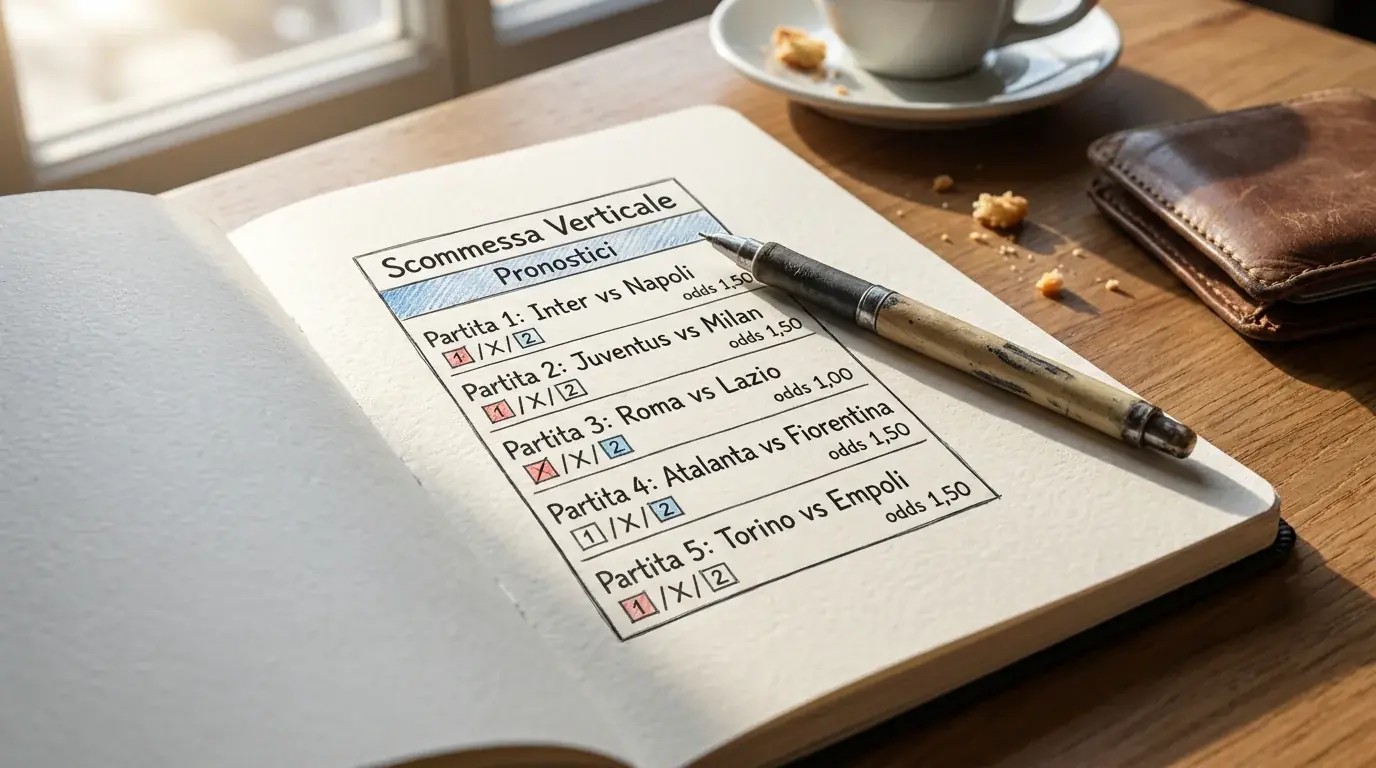 Scommessa Verticale
Pronostici
Partita 1: Inter vs Napoli
odds 1,50
1/X/2
Partita 2: Juventus vs Milan
odds 1,50
1/X/2
Partita 3: Roma vs Lazio
odds 1,00
X/X/2
Partita 4: Atalanta vs Fiorentina
odds 1,50
1/X/2
Partita 5: Torino vs Empoli
odds 1,50
1/X/2